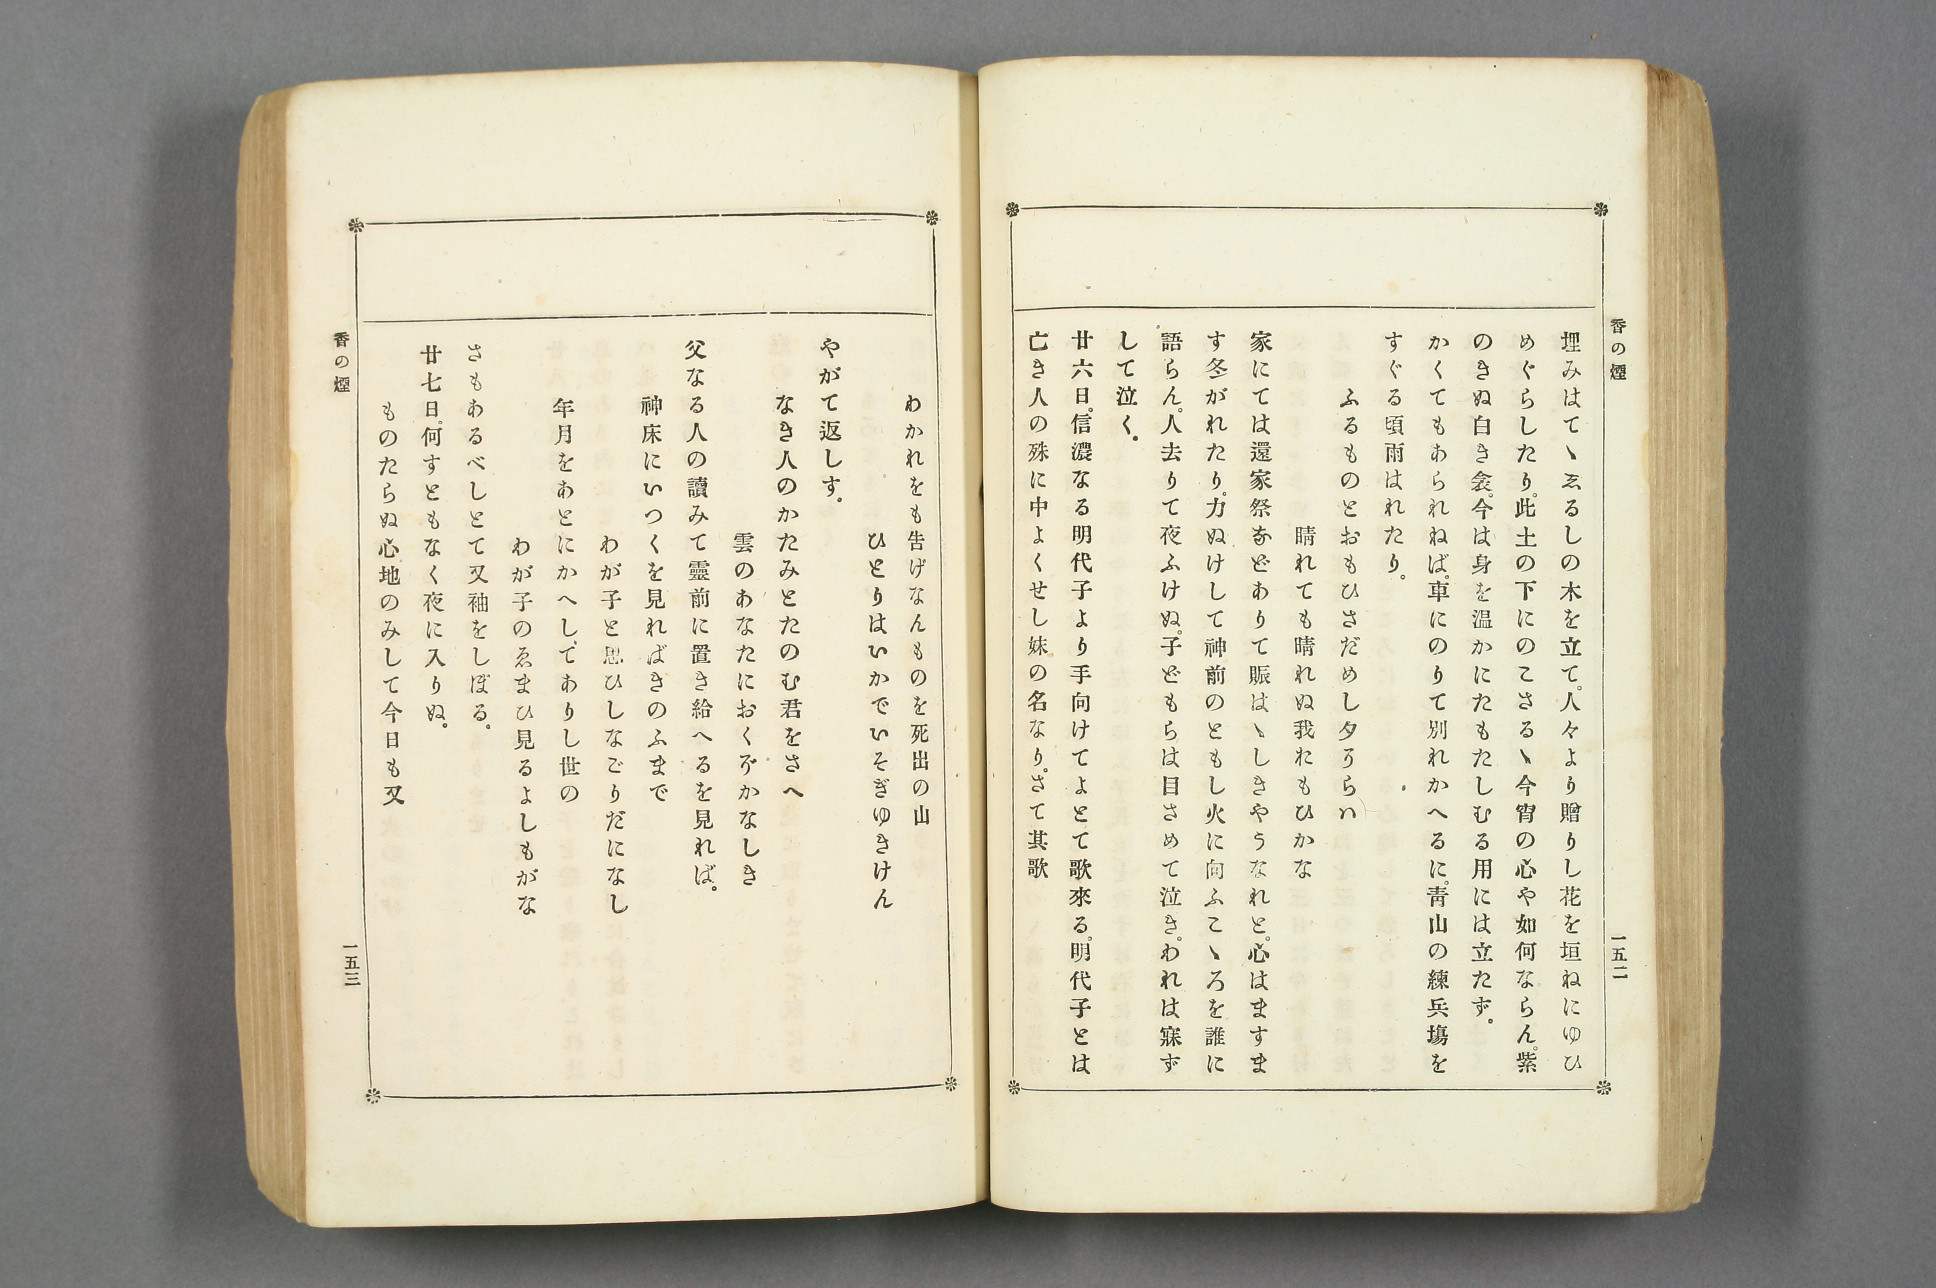 香の煙
一五二
埋みはてゝゑるしの木を立て。人々より贈りし花を垣ねにゆひ
めぐらしたり。此土の下にのこさるゝ今宵の心や如何ならん。紫
のきぬ白き衾。今は身を温かにたもたしむる用には立たず。
かくてもあられねば。車にのりて別れかへるに。青山の練兵塲を
すぐる頃雨はれたり。
ふるものとおもひさだめし夕うらハ
晴れても晴れぬ我たもひかな
家にては還家祭などありて賑はゝしきやうなれど。心はますま
す冬がれたり。力ぬけして神前のともし火に向ふこゝろを誰に
語らん。人去りて夜ふけぬ。子どもらは目さめて泣き。われは寐ず
して泣く。
廿六日。信濃なる明代子より手向けてよとて歌來る。明代子とは
亡き人の殊に中よくせし妹の名なり。さて其歌
わかれをも告げなんものを死出の山
ひとりはいかでいそぎゆきけん
やがて返しす。
なき人のかたみとたのむ君をさへ
雲のあなたにおくぞかなしき
父なる人の讀みて靈前に置き給へるを見れば。
神床にいつくを見ればきのふまで
わが子と思ひしなごりだになし
年月をあとにかへしてありし世の
わが子のゑまひ見るよしもがな
さもあるべしとて又袖をしぼる。
廿七日。何すともなく夜に入りぬ。
ものたらぬ心地のみして今日も又
香の煙
一五三